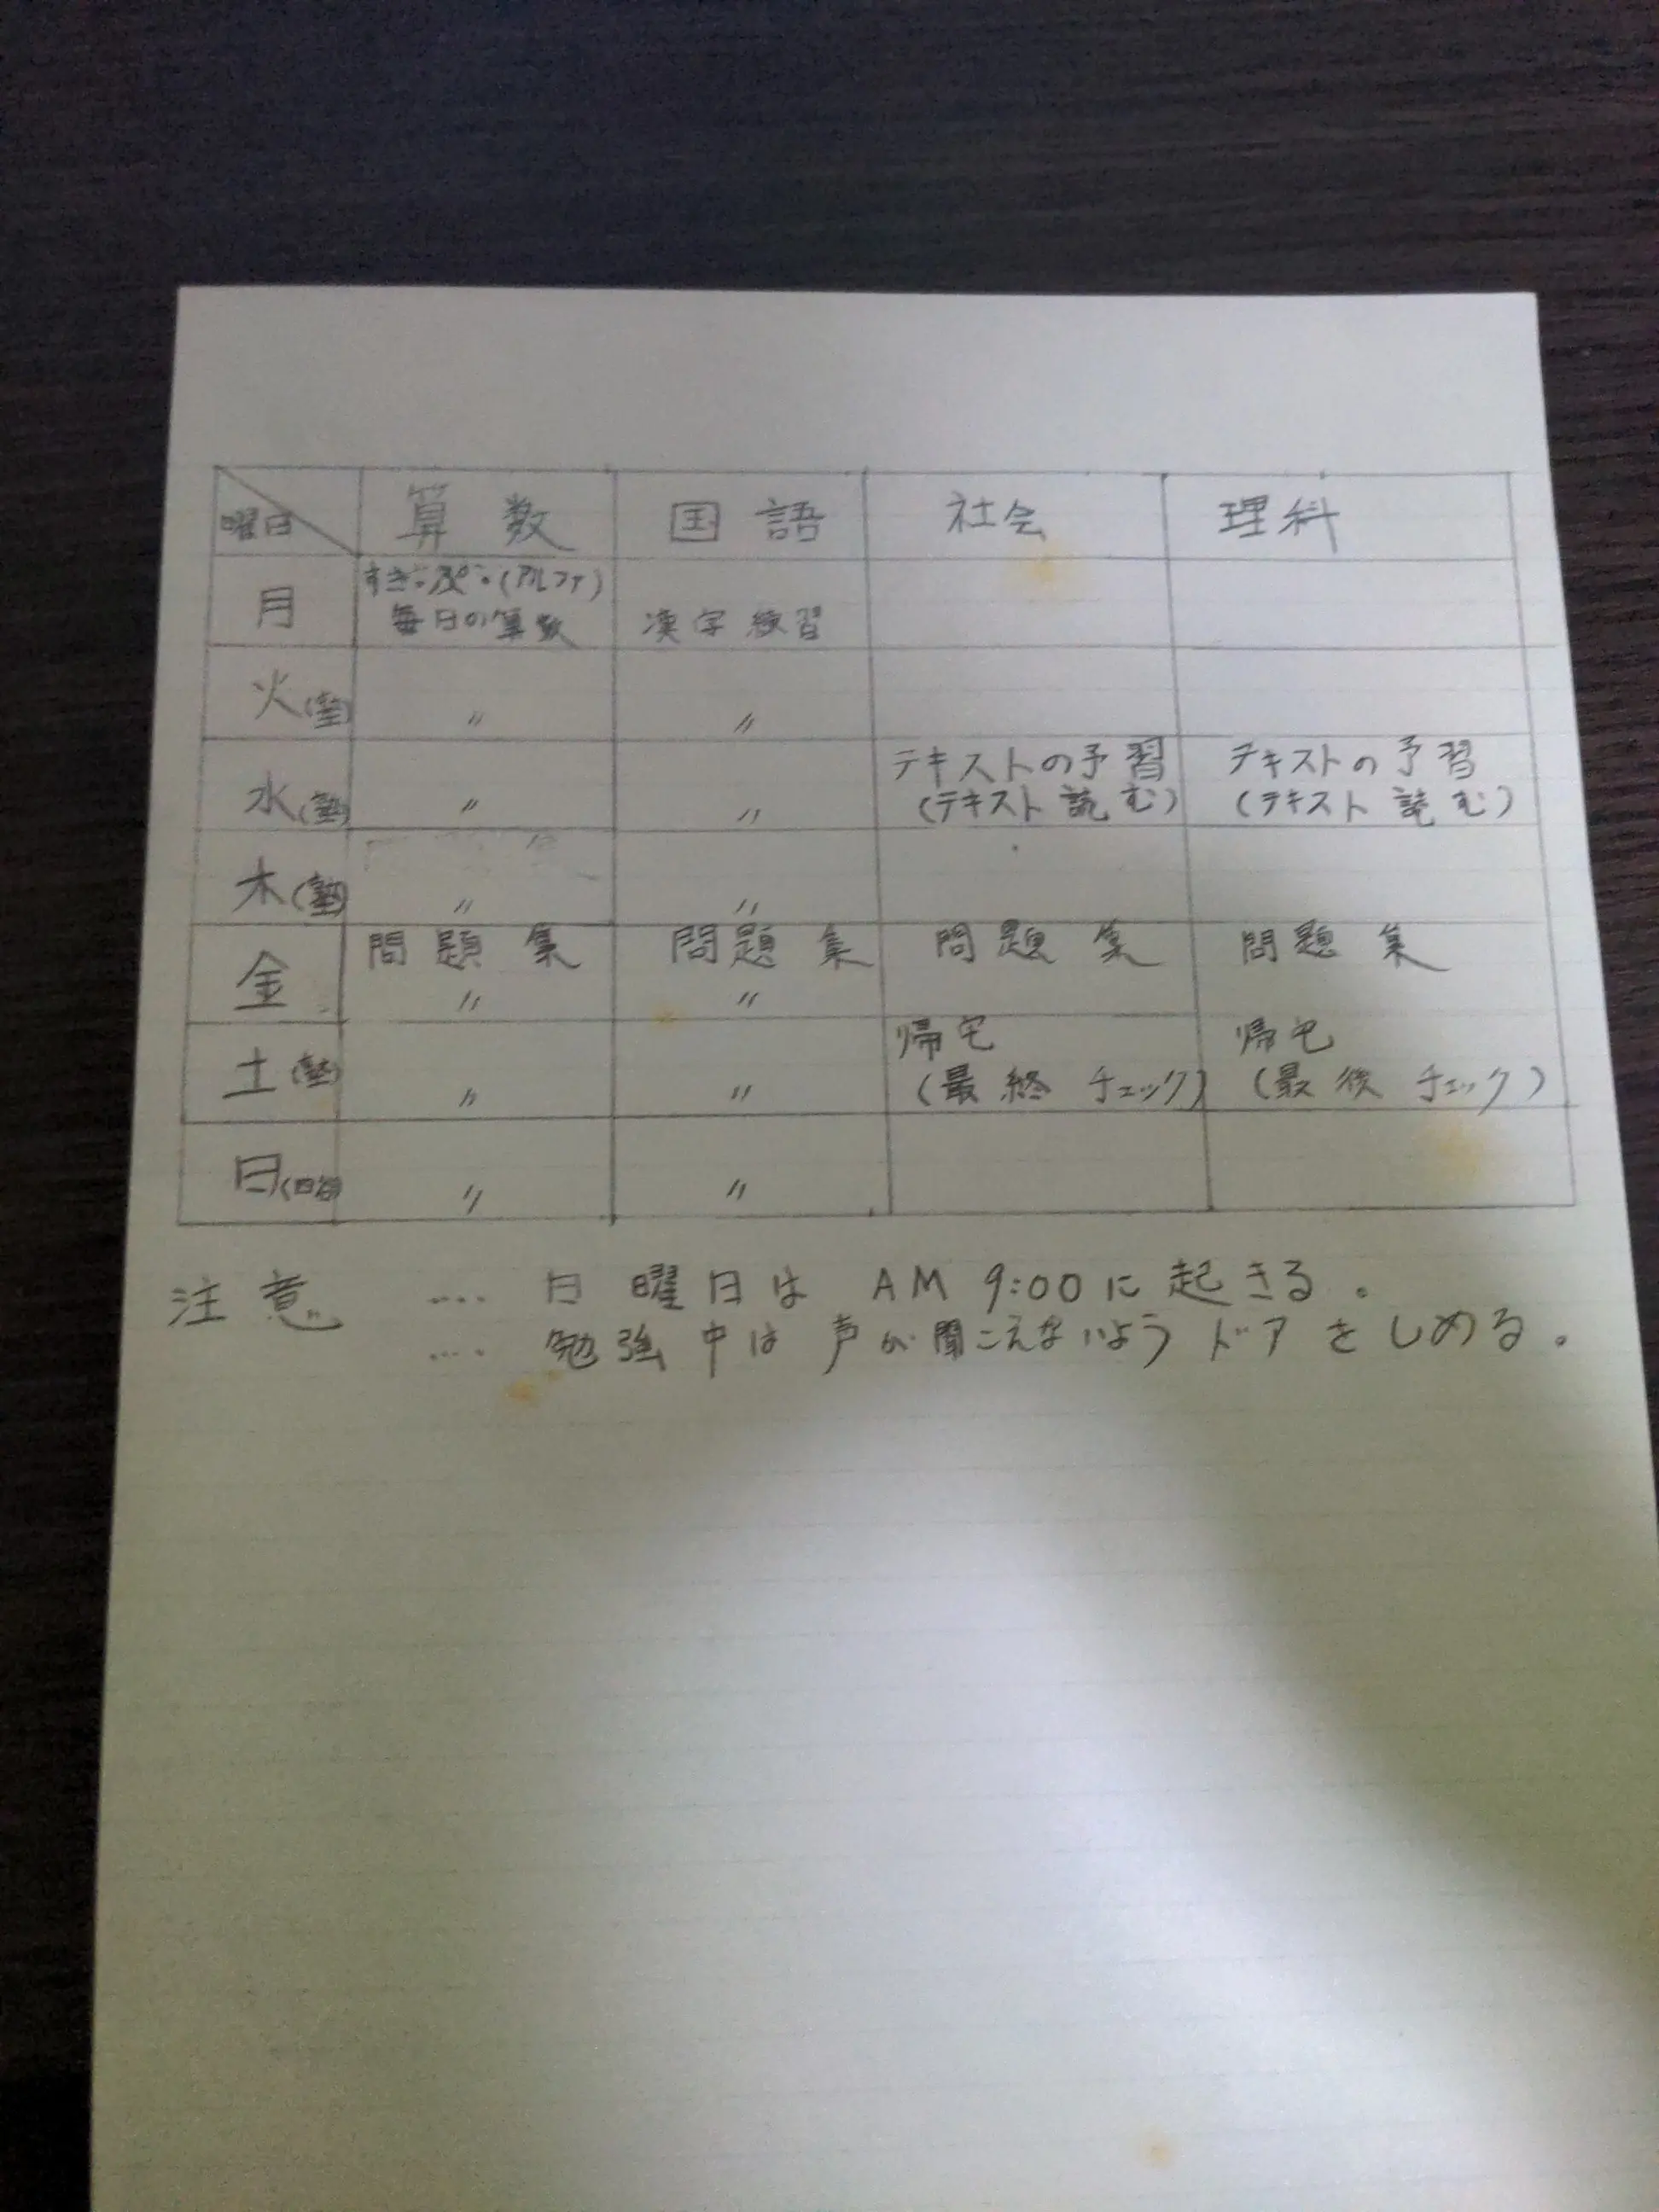 曜日 算数 国語 社会 理科
月 (アルファ)
毎日の算数 漢字練習
火(塾) 〃 〃
テキストの予習 テキストの予習
水(塾) 〃 〃 (テキスト読む) (テキスト読む)
木(塾) 〃 〃
金 問題集 問題集 問題集 問題集
〃 〃
帰宅 帰宅
土(塾) 〃 〃 (最終チェック) (最後チェック)
日(四谷) 〃 〃
注意 .... 日曜日は AM 9:00に起きる。
.... 勉強中は声が聞こえないようドアをしめる。